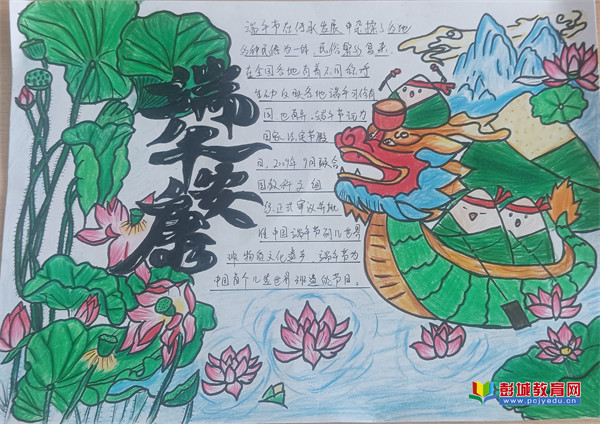 端午安康
端午节在传承发展中杂揉了多地
多种民俗为一体,民俗繁多
在全国各地有着不同
各地
端午节
国家法定节假
日。2009年9月联合
国教科文组
织正式审议并批
准中国端午节列入世界
非物质文化遗产,端午节为
中国首个入选世界非遗的节日。
彭城教育网
www.pcjyedu.cn